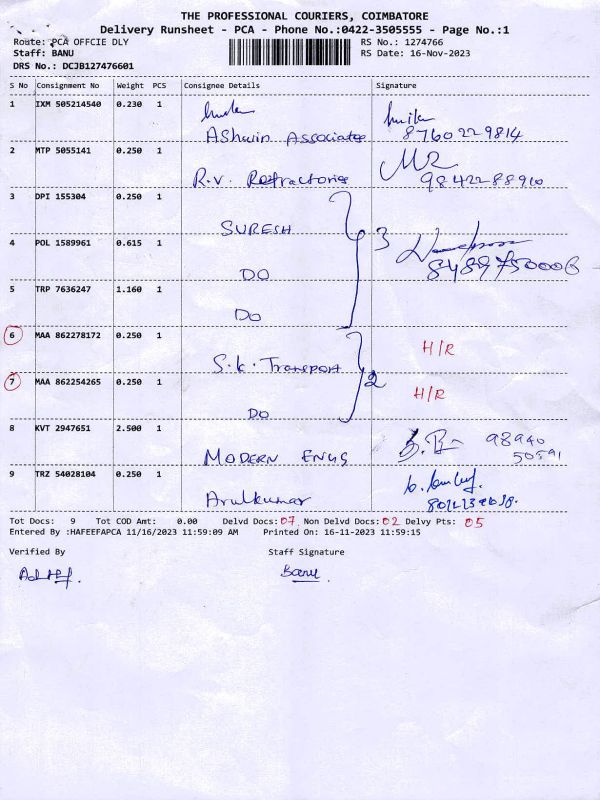 THE PROFESSIONAL COURIERS, COIMBATORE
Delivery Runsheet - PCA - Phone No.:0422-3505555 - Page No.:1
Route: PCA OFFCIE DLY RS No.: 1274766
Staff: BANU RS Date: 16-Nov-2023
DRS No.: DCJB127476601
S No Consignment No Weight PCS Consignee Details Signature
1 IXM 505214540 0.230 1
Ashwin Associates 8760229814
2 MTP 5055141 0.250 1
R.V. Refractories 9842288910
3 DPI 155304 0.250 1
SURESH 3
4 POL 1589961 0.615 1
DO 8489750006
5 TRP 7636247 1.160 1
DO
6 MAA 862278172 0.250 1
S.K. Transport H/R
7 MAA 862254265 0.250 1 2 H/R
DO
8 KVT 2947651 2.500 1
MODERN ENGS 98940
50591
9 TRZ 54028104 0.250 1
Arulkumar
Tot Docs: 9 Tot COD Amt: 0.00 Delvd Docs: 07 Non Delvd Docs: 02 Delvy Pts: 05
Entered By :HAFEEFAPCA 11/16/2023 11:59:09 AM Printed On: 16-11-2023 11:59:15
Verified By Staff Signature
Banu